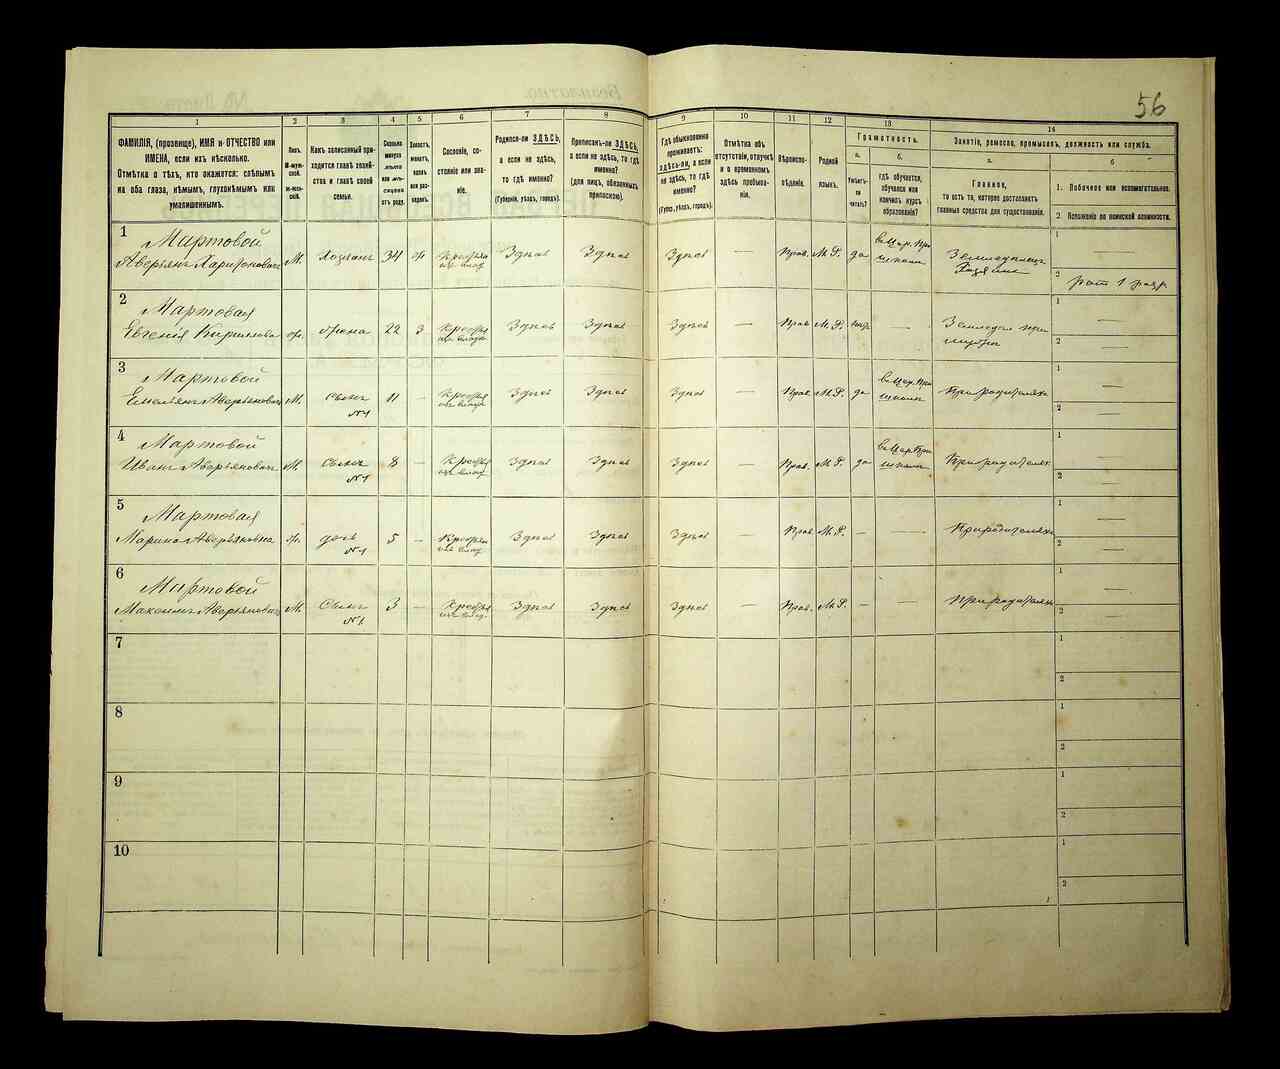 56
1
2
3
4
5
6
7
8
9
10
11
12
13
14
ФАМИЛІЯ, (прозвище), ИМЯ и ОТЧЕСТВО или
ИМЕНА, если ихъ нѣсколько.
Отмѣтка о тѣхъ, кто окажется: слѣпымъ
на оба глаза, нѣмымъ, глухонѣмымъ или
умалишеннымъ.
Полъ.
М-муж-
ской.
Ж-жен-
скій.
Какъ записанный при-
ходится главѣ хозяй-
ства и главѣ своей
семьи.
Сколько
минуло
лѣтъ
или мѣ-
сяцевъ
отъ роду.
Холостъ,
женатъ,
вдовъ
или раз-
веденъ.
Сословіе, со-
стояніе или зва-
ніе.
Родился-ли ЗДѢСЬ,
а если не здѣсь,
то гдѣ именно?
(Губернія, уѣздъ, городъ).
Приписанъ-ли ЗДѢСЬ,
а если не здѣсь, то гдѣ
именно?
(для лицъ, обязанныхъ
припискою).
Гдѣ обыкновенно
проживаетъ:
здѣсь-ли, а если
не здѣсь, то гдѣ
именно?
(Губер., уѣздъ, городъ).
Отмѣтка объ
отсутствіи, отлучкѣ
и о временномъ
здѣсь пребыва-
ніи.
Вѣроиспо-
вѣданіе.
Родной
языкъ.
Грамотность.
а.
б.
Умѣетъ-
ли
читать?
гдѣ обучается,
обучался или
кончилъ курсъ
образованія?
Занятіе, ремесло, промыселъ, должность или служба.
а.
б
Главное,
то есть то, которое доставляетъ
главныя средства для существованія.
1. Побочное или вспомогательное.
2. Положеніе по воинской повинности.
1
Мартовой
Аверьянъ Харитоновичъ М. Хозяинъ 34 Здѣсь Здѣсь Здѣсь — Прав. М.Р. да
Земледѣлецъ
Хозяинъ
1 —
2
2
Мартовая
Евгенія Кирилова жена 22 3 Здѣсь Здѣсь Здѣсь — Прав М.Р. —
1 —
2 —
3
Мартовой
Емельянъ Аверьяновичъ М. Сынъ 11 — Здѣсь Здѣсь Здѣсь — Прав. М.Р. да школа При родителяхъ
№1
1 —
2 —
4
Мартовой
Иванъ Аверьяновичъ М. Сынъ 8 — Здѣсь Здѣсь Здѣсь — Прав. М.Р. да школа При родителяхъ
№1
1 —
2 —
5
Мартовая
Марина Аверьяновна дочь 5 — Здѣсь Здѣсь Здѣсь — Прав М.Р. — — При родителяхъ
№1
1 —
2 —
6
Мартовой
Максимъ Аверьяновичъ М. Сынъ 3 — Здѣсь Здѣсь Здѣсь — Прав. М.Р. — — При родителяхъ
№1.
1 —
2 —
7
1
2
8
1
2
9
1
2
10
1
2